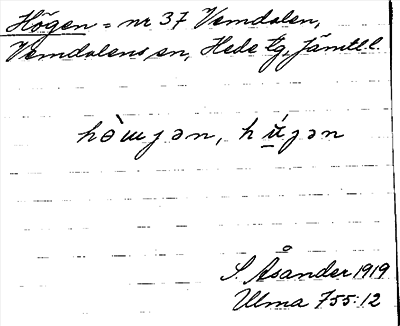 Högen = nr 37 Vemdalen,
Vemdalens sn, Hede tg, Jämtl.l.
hòɯȷən, hǘȷən
S. Åsander 1919
Ulma 755:12